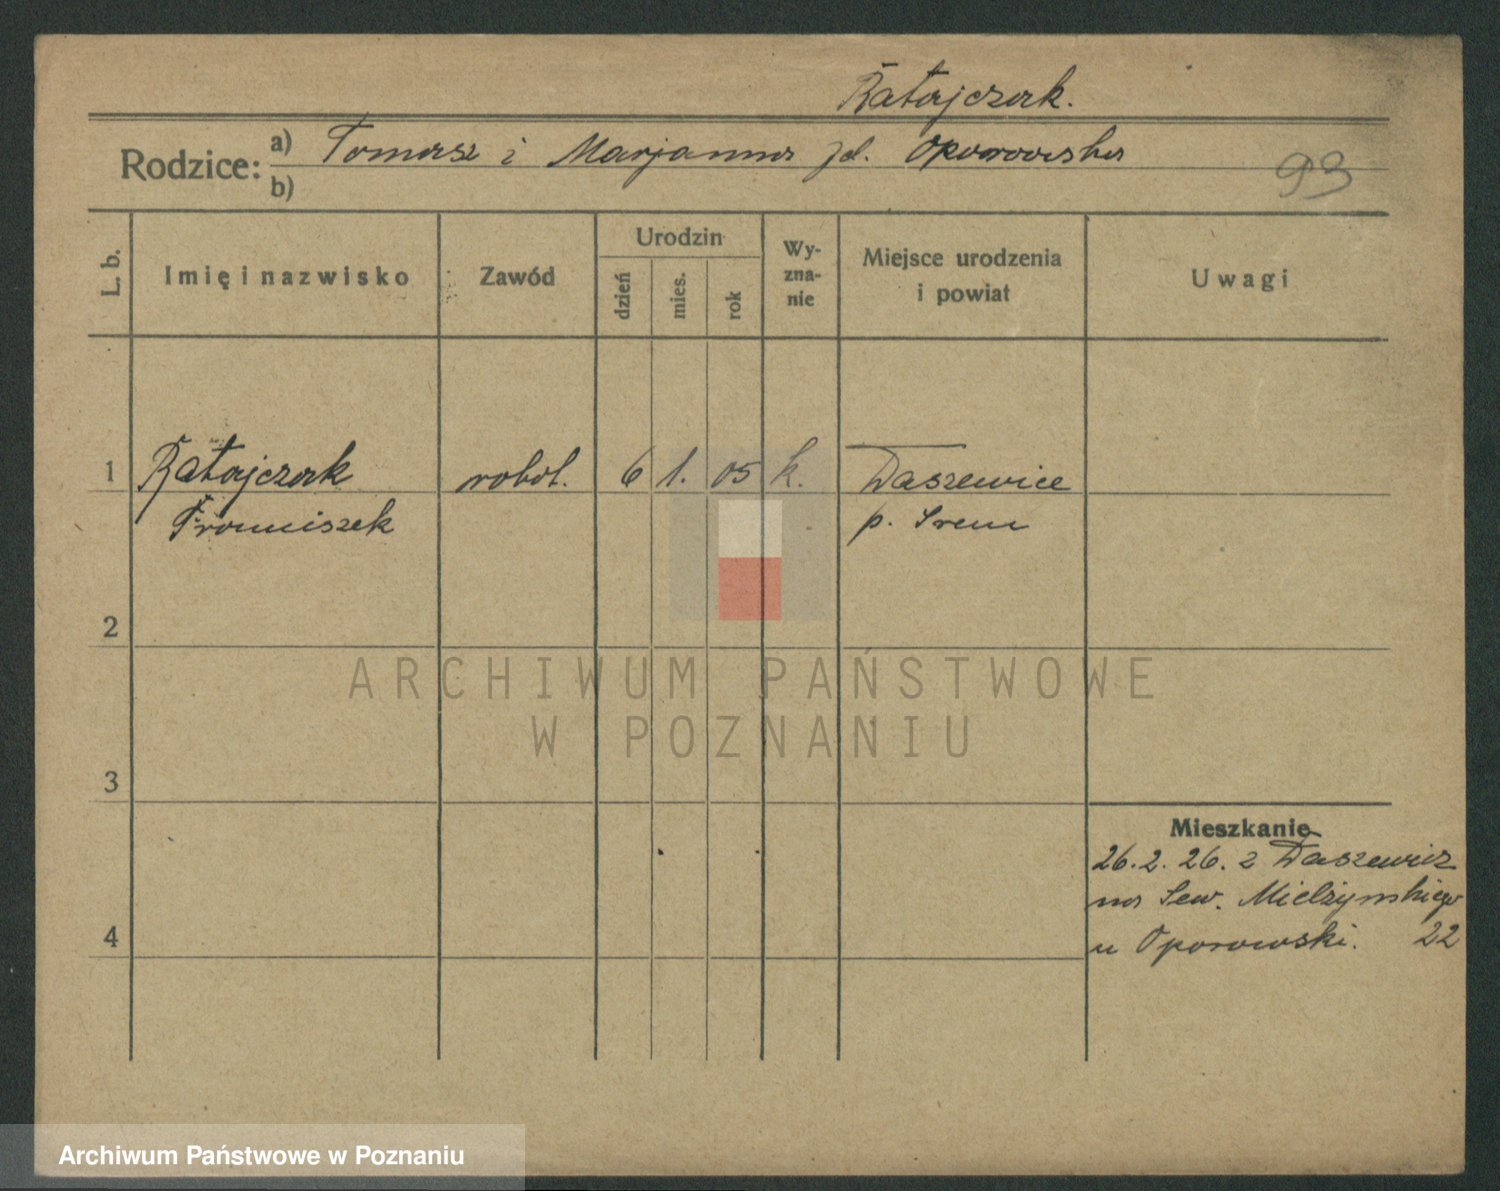 Ratajczak.
Rodzice: a) Tomasz i Marjanna jd. Oporowska
b)
93
L. b.
Imię i nazwisko
Zawód
Urodzin
dzień
mies.
rok
Wy-
zna-
nie
Miejsce urodzenia
i powiat
Uwagi
1 Ratajczak robot. 6 1. 05 k. Daszewice
Franciszek p. Srem
2
3
4
Mieszkanie
26.2.26. z Daszewic
na Sew. Mielżynskiego
u Oporowski. 22
ARCHIWUM PAŃSTWOWE
W POZNANIU
Archiwum Państwowe w Poznaniu